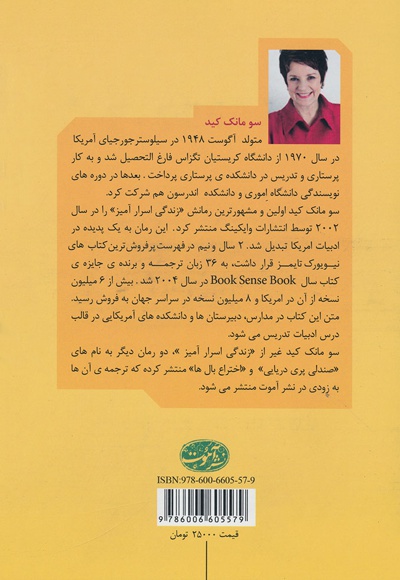 سو مانک کید
متولد آگوست ۱۹۴۸ در سیلوسترجورجیای آمریکا
در سال ۱۹۷۰ از دانشگاه کریستیان تگزاس فارغ التحصیل شد و به کار
پرستاری و تدریس در دانشکده ی پرستاری پرداخت. بعدها در دوره های
نویسندگی دانشگاه اِموری و دانشکده اندرسون هم شرکت کرد.
سو مانک کید اولین و مشهورترین رمانش «زندگی اسرار آمیز» را در سال
۲۰۰۲ توسط انتشارات وایکینگ منتشر کرد. این رمان به یک پدیده در
ادبیات امریکا تبدیل شد. ۲ سال و نیم در فهرست پرفروش‌ترین کتاب های
نیویورک تایمز قرار داشت، به ۳۶ زبان ترجمــه و برنده ی جایزه ی
کتاب سال Book Sense Book در سال ۲۰۰۴ شد. بیش از ۶ میلیون
نسخه از آن در امریکا و ۸ میلیون نسخه در سراسر جهان به فروش رسید.
متن این کتاب در مدارس، دبیرستان ها و دانشکده های آمریکایی در قالب
درس ادبیات تدریس می شود.
سو مانک کید غیر از «زندگی اسرار آمیز »، دو رمان دیگر به نام های
«صندلی پری دریایی» و «اختراع بال ها» منتشر کرده که ترجمه ی آن ها
به زودی در نشر آموت منتشر می شود.
نشر آموت
ISBN:978-600-6605-57-9
9 786006 605579
قیمت ۲۵۰۰۰ تومان